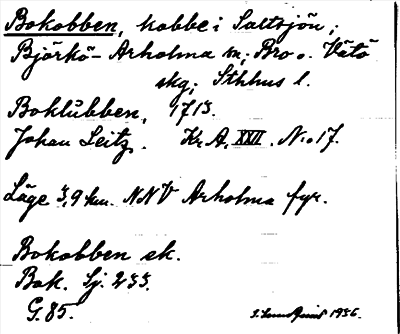 Bokobben, kobbe i Saltsjön;
Björkö-Arholma sn; Bro o. Vätö
skg; Sthlms l.
Boklubben, 1713.
Johan Leitz. Kr. A. XXII. No 17.
Läge 3,9 km. NNV Arholma fyr.
Bokobben ek.
Bok. Sj. 255.
G. 85.
1936.